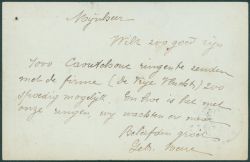 Mijnheer
Wilt zoo goed zijn
1000 Caoutchouc ringen te zenden
met de firma (de Vrije Vlucht) zoo
spoedig mogelijk. En hoe is het met
onze ringen, wij wachten er naar
Beleefden groet